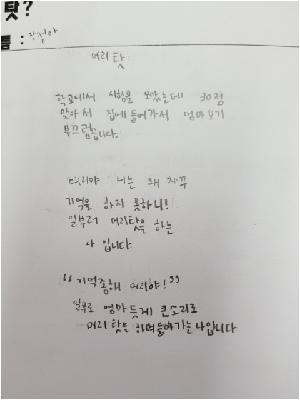 탓?
름:
머리 탓
학교에서 시험을 보았는데 30점
맞아서 집에 들어가서 엄마 보기
부끄럽습니다.
머리야 너는 왜 자꾸
기억을 하지 못하니!
일부러 머리탓을 하는
나 입니다
"기억좀해 머리야!"
일부로 엄마 듣게 큰소리로
머리 탓을 하며 들어가는 나입니다